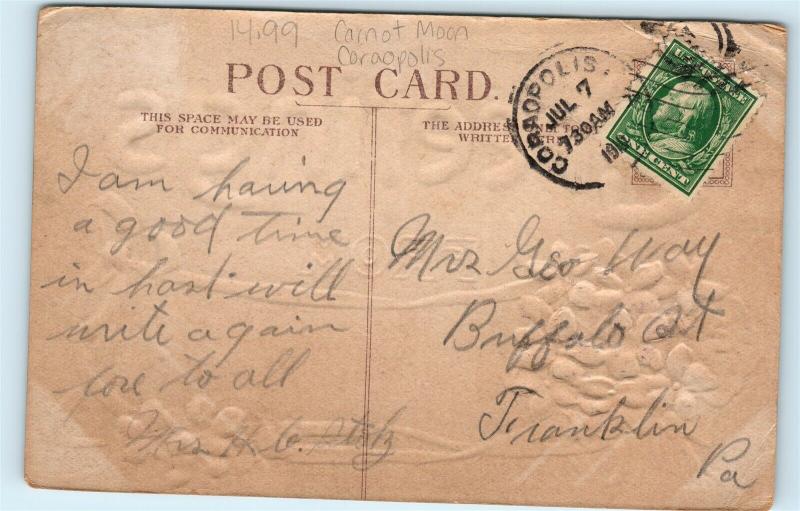 14.99 Carnot Moon
Coraopolis
POST CARD.
THIS SPACE MAY BE USED
FOR COMMUNICATION
THE ADDRESS ONLY TO
WRITTEN
CORAOPOLIS.
JUL 7
730AM
ONE CENT
I am having
a good time
in hast will
write again
love to all
Mrs H. C.
Mrs Geo Way
Buffalo St
Franklin
Pa